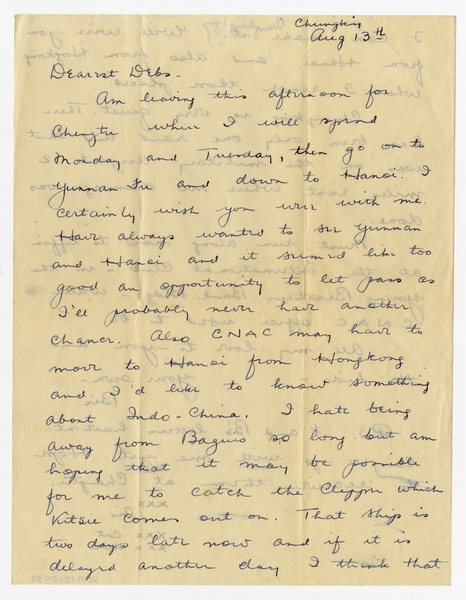 Chungking
Aug 13th
Dearest Debs -
Am leaving this afternoon for
Chengtu where I will spend
Monday and Tuesday, then go on to
Yunnan Fu and down to Hanoi. I
certainly wish you were with me.
Have always wanted to see Yunnan
and Hanoi and it seemed like too
good an opportunity to let pass as
I'll probably never have another
chance. Also CNAC may have to
move to Hanoi from Hongkong
and I'd like to know something
about Indo-China. I hate being
away from Baguio so long but am
hoping that it may be possible
for me to catch the Clipper which
Kitsie comes out on. That ship is
two days late now and if it is
delayed another day I think that